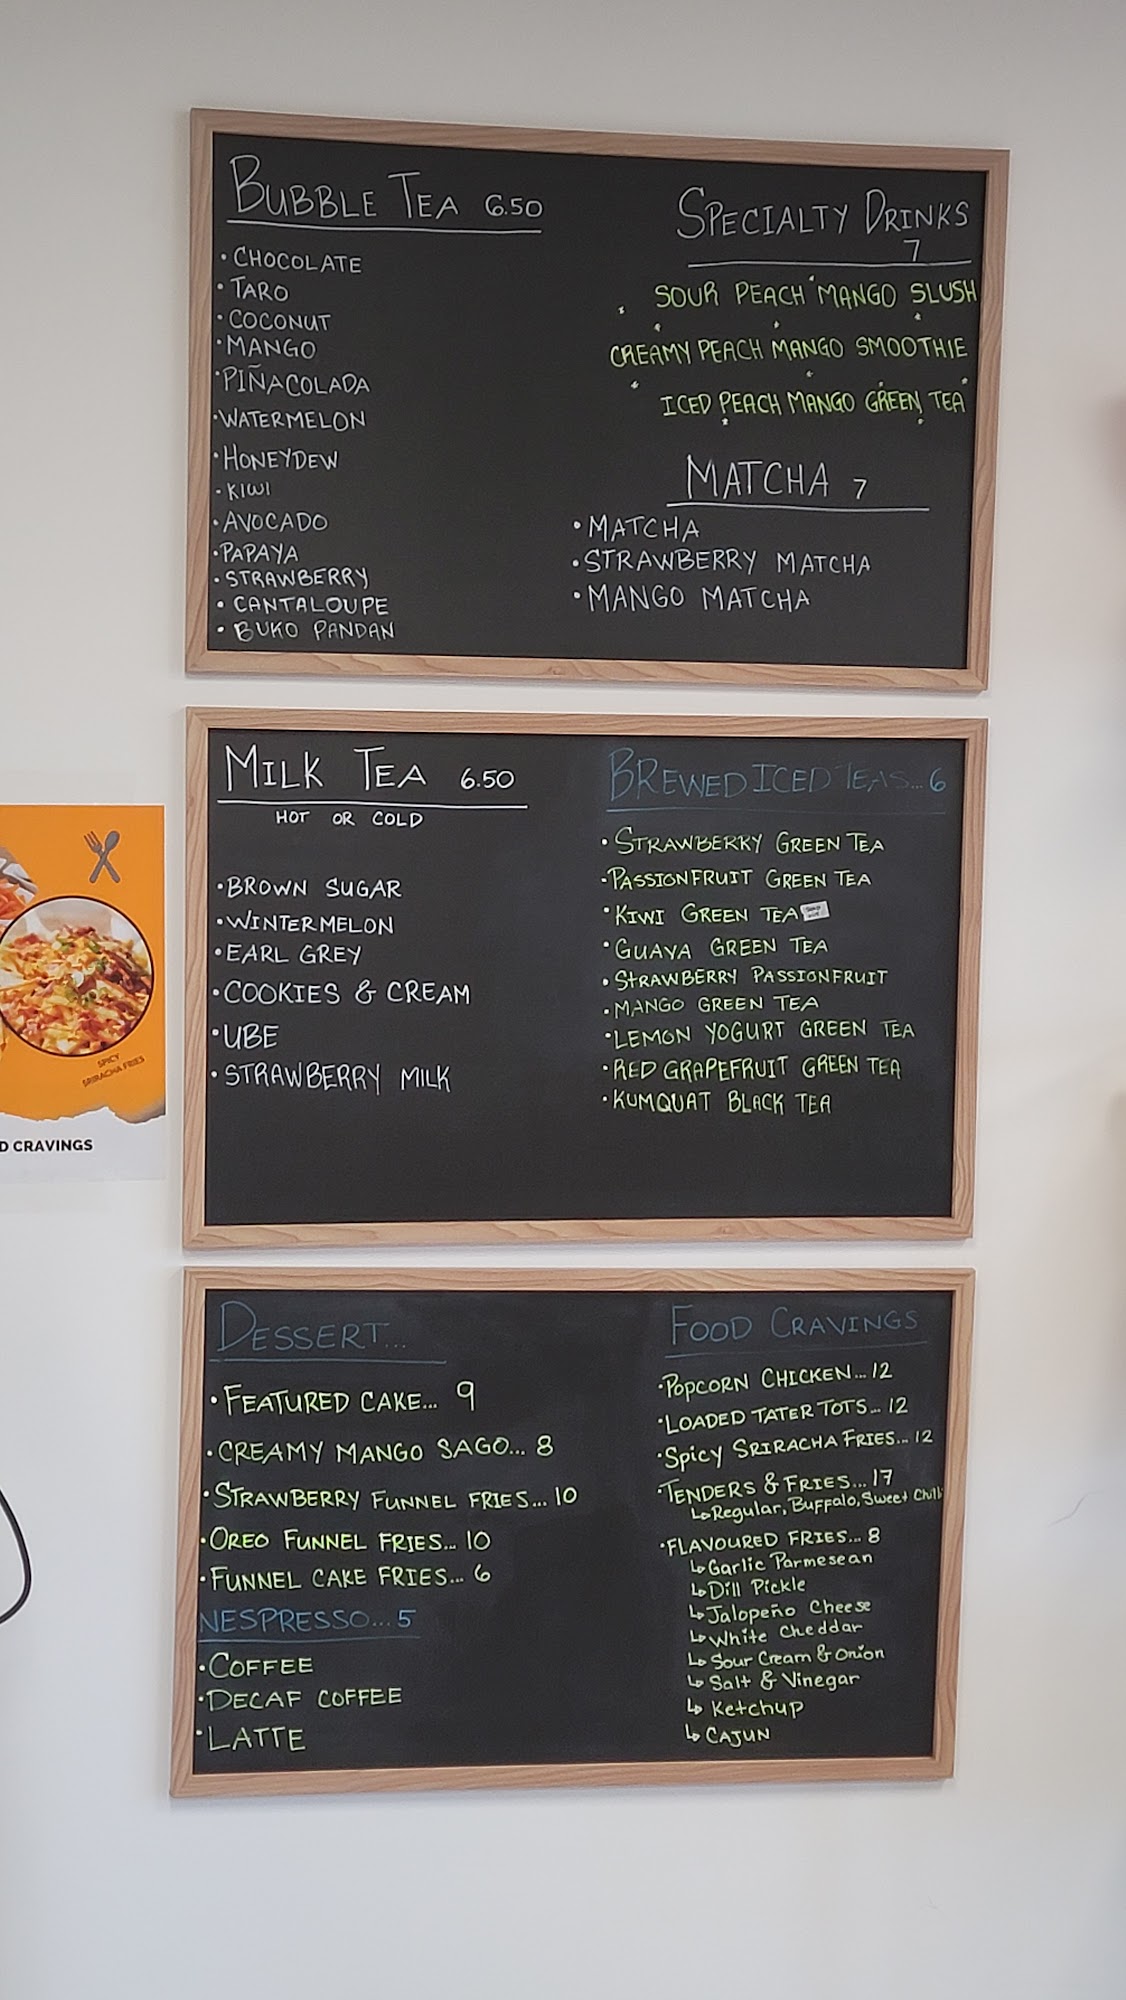 BUBBLE TEA 6.50
• CHOCOLATE
• TARO
• COCONUT
• MANGO
• PIÑACOLADA
• WATERMELON
• HONEYDEW
• KIWI
• AVOCADO
• PAPAYA
• STRAWBERRY
• CANTALOUPE
• BUKO PANDAN
SPECIALTY DRINKS
7
SOUR PEACH MANGO SLUSH
CREAMY PEACH MANGO SMOOTHIE
ICED PEACH MANGO GREEN TEA
MATCHA 7
• MATCHA
• STRAWBERRY MATCHA
• MANGO MATCHA
MILK TEA 6.50
HOT OR COLD
• BROWN SUGAR
• WINTERMELON
• EARL GREY
• COOKIES & CREAM
• UBE
• STRAWBERRY MILK
BREWED ICED TEAS... 6
• STRAWBERRY GREEN TEA
• PASSIONFRUIT GREEN TEA
• KIWI GREEN TEA
• GUAVA GREEN TEA
• STRAWBERRY PASSIONFRUIT
• MANGO GREEN TEA
• LEMON YOGURT GREEN TEA
• RED GRAPEFRUIT GREEN TEA
• KUMQUAT BLACK TEA
SPICY
SRIRACHA FRIES
D CRAVINGS
DESSERT...
• FEATURED CAKE... 9
• CREAMY MANGO SAGO... 8
• STRAWBERRY FUNNEL FRIES... 10
• OREO FUNNEL FRIES... 10
• FUNNEL CAKE FRIES... 6
NESPRESSO... 5
• COFFEE
• DECAF COFFEE
• LATTE
FOOD CRAVINGS
• POPCORN CHICKEN... 12
• LOADED TATER TOTS... 12
• Spicy SRIRACHA FRIES... 12
• TENDERS & FRIES... 17
↳ Regular, Buffalo, Sweet Chili
• FLAVOURED FRIES... 8
↳ Garlic Parmesean
↳ Dill Pickle
↳ Jalopeño Cheese
↳ White Cheddar
↳ Sour Cream & Onion
↳ Salt & Vinegar
↳ Ketchup
↳ CAJUN